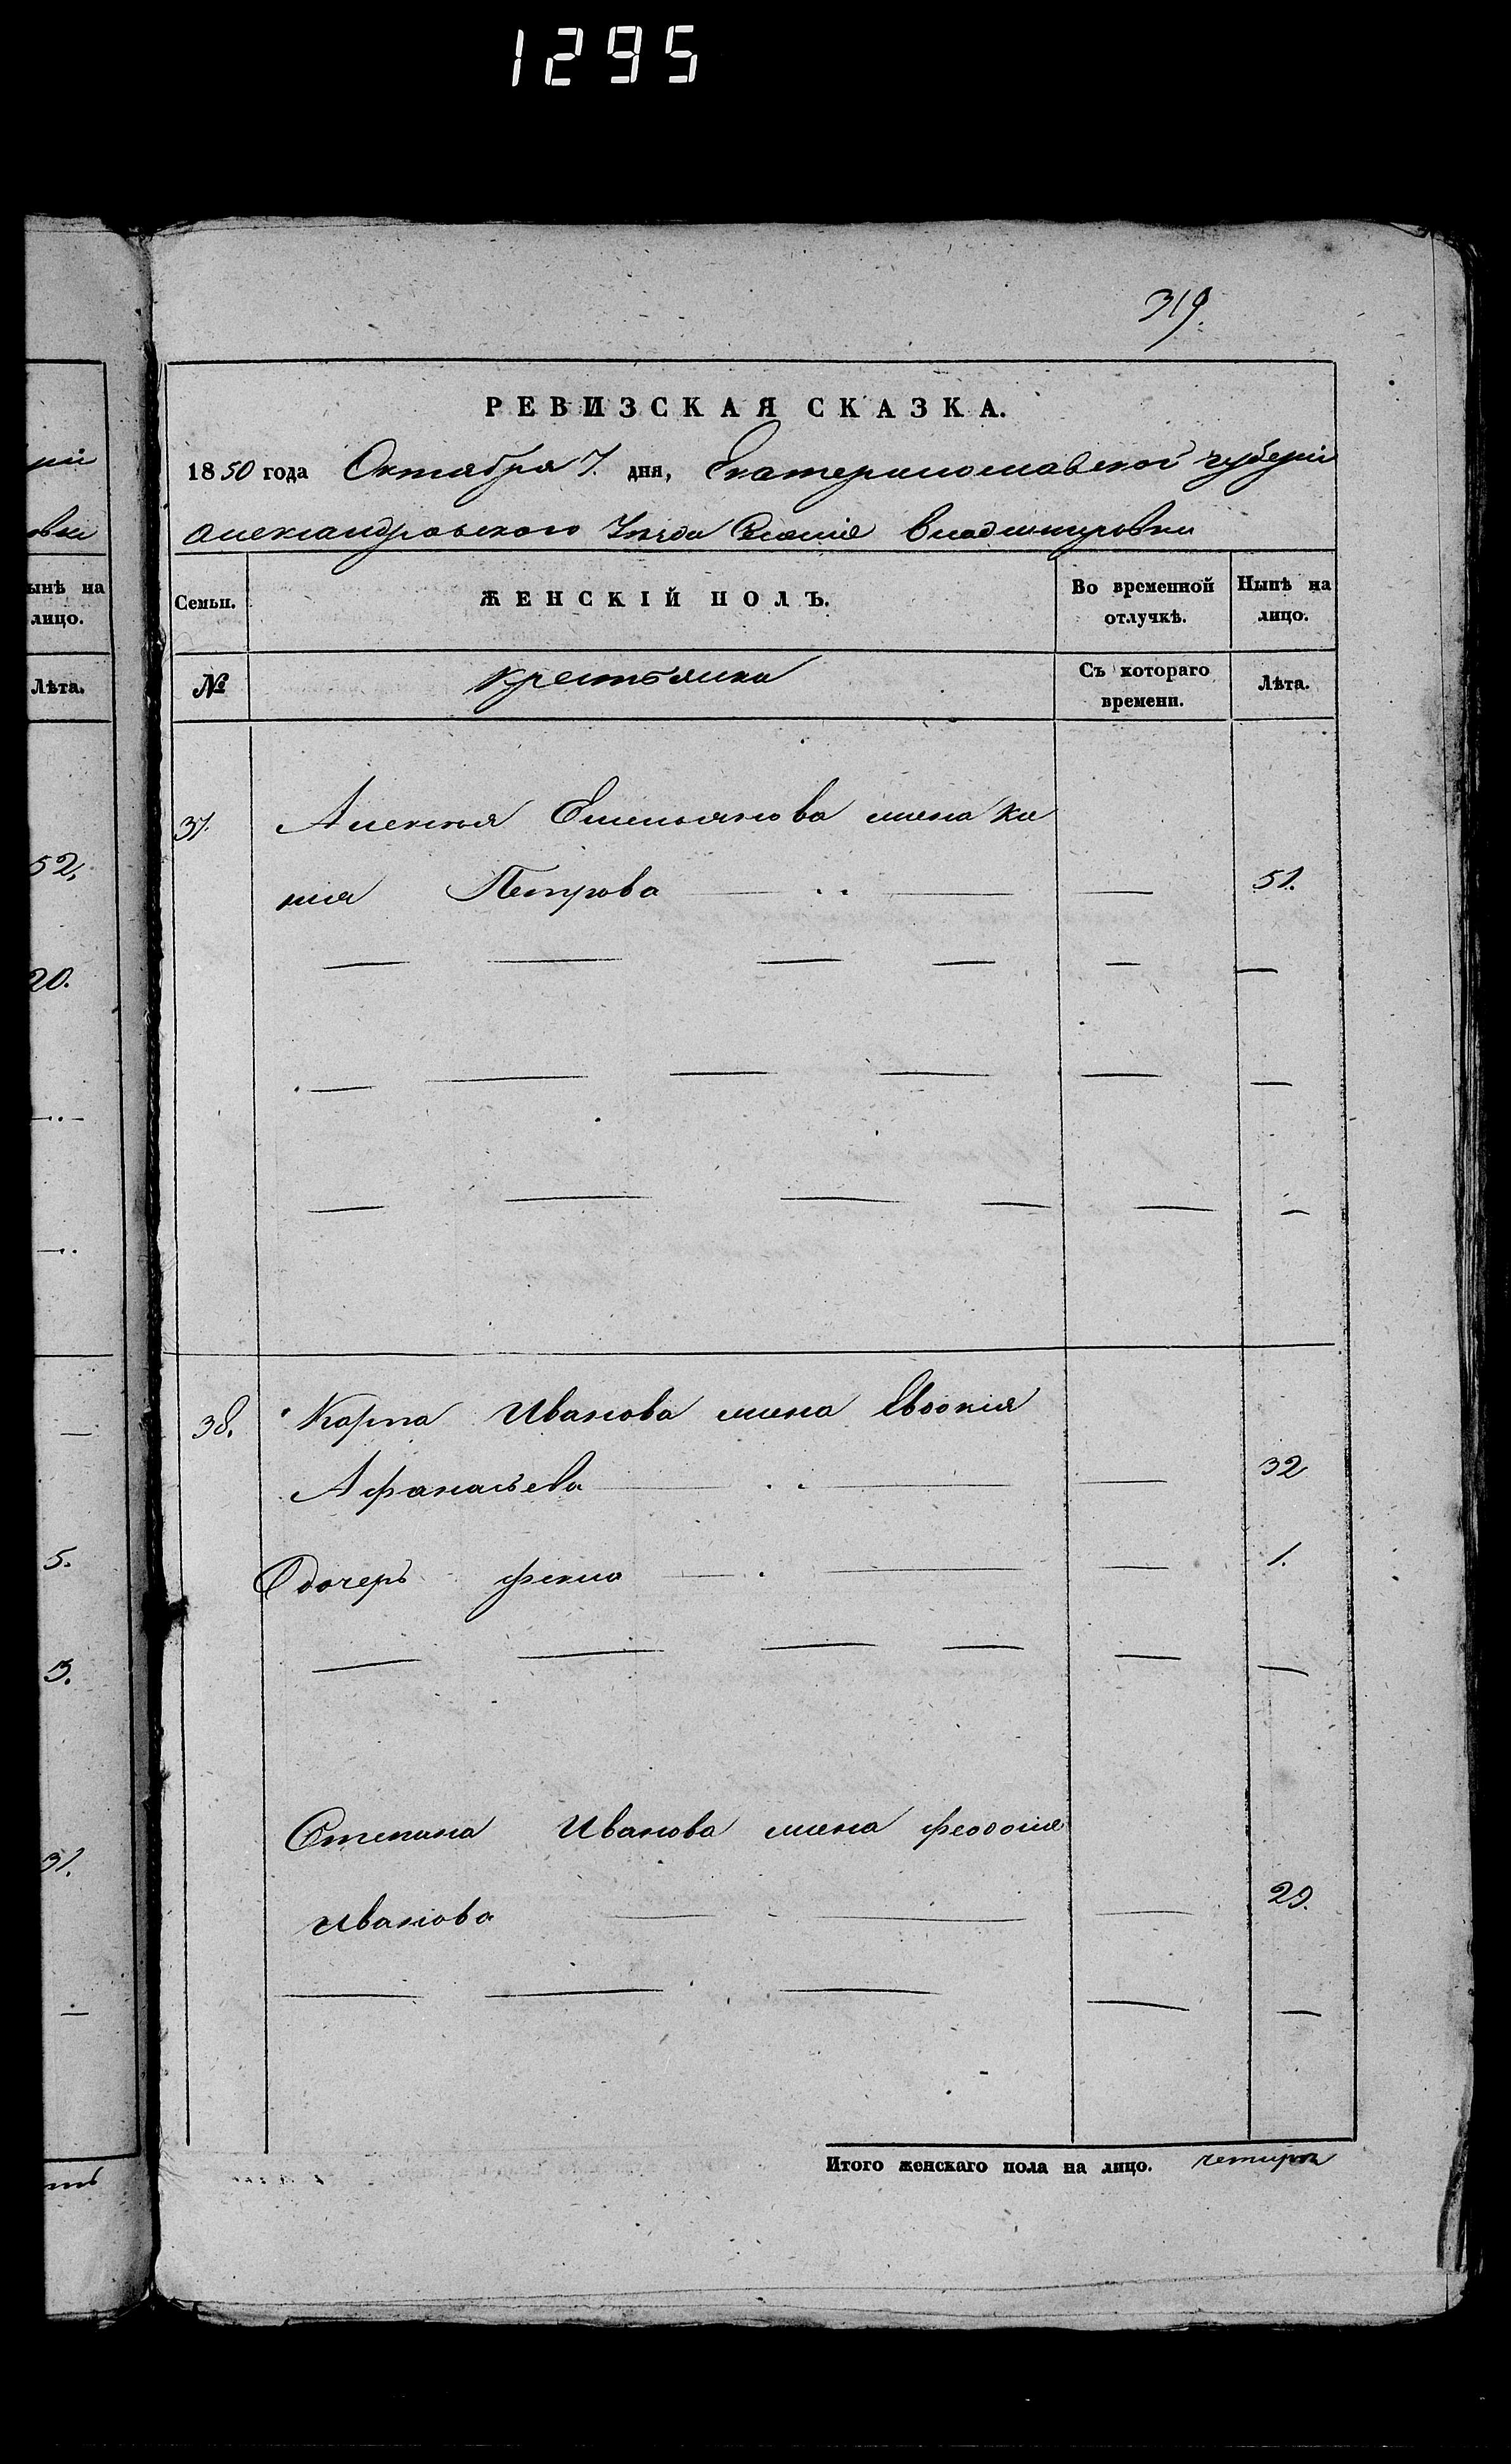 1295
319.
РЕВИЗСКАЯ СКАЗКА.
1850 года Октября 7. дня, Екатеринославской губерніи
Александровского Уезда Селенія Владимировки
Семьи.
ЖЕНСКІЙ ПОЛЪ.
Во временной отлучкѣ.
Нынѣ на лицо.
№
Крестьянка
Съ котораго времени.
Лѣта.
37. Алексея Емельянова жена Ке
нія Петрова — — 51.
38. Карпа Иванова жена Евдокія
Афанасьева — — 32
дочерь Фекла — — 1.
Степана Иванова жена Феодосия
Иванова — — 29.
Итого женскаго пола на лицо. четыре
ріи
овки
ынѣ на
лицо.
Лѣта.
52.
20.
5.
3.
31.